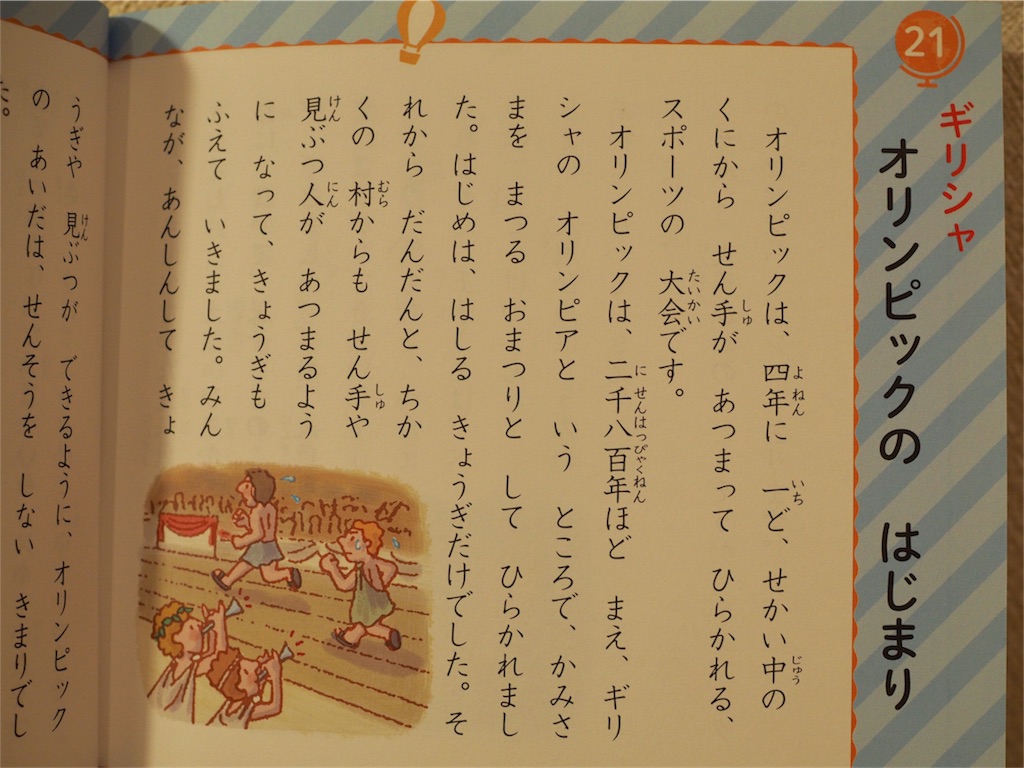 21
ギリシャ
オリンピックの はじまり
オリンピックは、四年に 一ど、せかい中の
よねん いち じゅう
くにから せん手が あつまって ひらかれる、
しゅ
スポーツの 大会です。
たいかい
オリンピックは、二千八百年ほど まえ、ギリ
に せんはっぴゃくねん
シャの オリンピアと いう ところで、かみさ
まを まつる おまつりと して ひらかれまし
た。はじめは、はしる きょうぎだけでした。そ
れから だんだんと、ちか
くの 村からも せん手や
むら しゅ
見ぶつ人が あつまるよう
けん にん
に なって、きょうぎも
ふえて いきました。みん
なが、あんしんして きょ
うぎや 見ぶつが できるように、オリンピック
けん
の あいだは、せんそうを しない きまりでし
た。